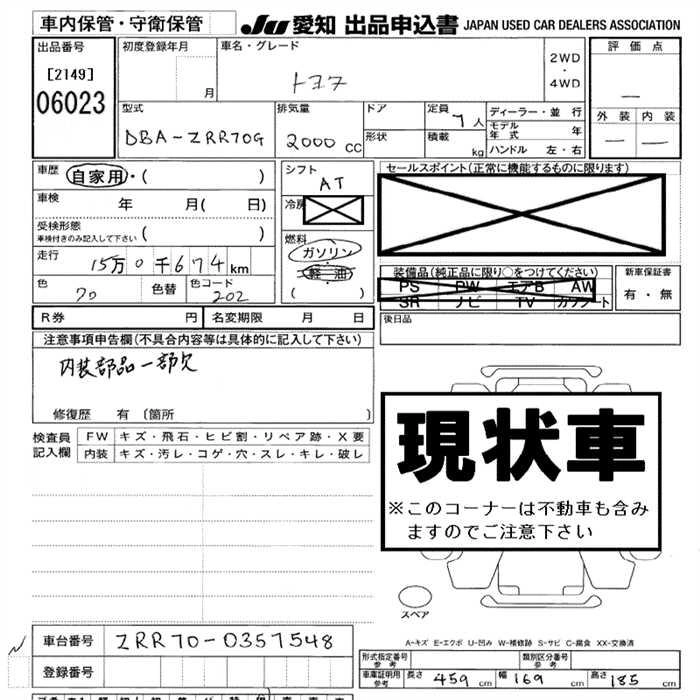 車内保管・守衛保管
JU 愛知 出品申込書 JAPAN USED CAR DEALERS ASSOCIATION
出品番号
[2149]
06023
初度登録年月
月
車名・グレード
トヨタ
2WD
・
4WD
評価点
―
外装 内装
― ―
型式
DBA-ZRR70G
排気量
2000 CC
ドア
形状
定員
7人
積載
kg
ディーラー・並行
モデル年式 年
ハンドル 左・右
車歴
自家用・( )
車検 年 月( 日)
受検形態
車検付きのみ記入して下さい ( )
走行
15万0千674km
色
70
色替
色コード
202
シフト
AT
冷房
燃料
ガソリン
軽油
( )
セールスポイント(正常に機能するものに限ります)
装備品(純正品に限り○をつけてください)
PS PW エアB AW
SR ナビ TV カワシート
新車保証書
有・無
R券 円
名変期限 月 日
後日品
注意事項申告欄(不具合内容等は具体的に記入して下さい)
内装部品一部欠
修復歴 有〔箇所 〕
検査員
記入欄
FW キズ・飛石・ヒビ割・リペア跡・X要
内装 キズ・汚レ・コゲ・穴・スレ・キレ・破レ
現状車
※このコーナーは不動車も含み
ますのでご注意下さい
スペア
A-キズ E-エクボ U-凹み W-補修跡 S-サビ C-腐食 XX-交換済
車台番号
ZRR70-0357548
登録番号
形式指定番号
参考
類別区分番号
参考
車庫証明用
参考
長さ 459 cm 幅 169 cm 高さ 185 cm